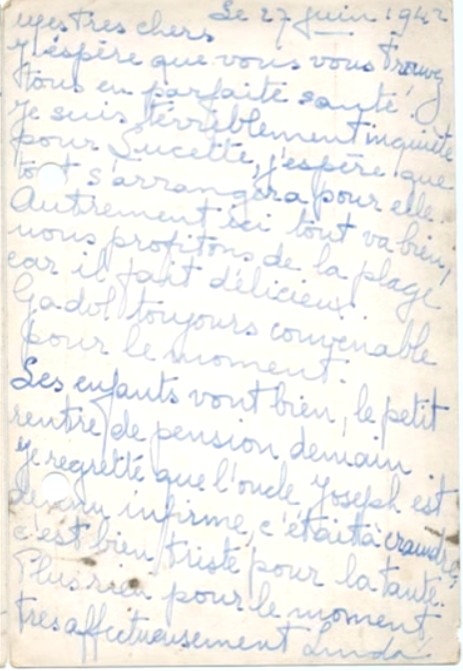 Le 27 juin 1942
Mes tres chers
J'éspère que vous vous trouvez
tous en parfaite santé.
Je suis terriblement inquiète
pour Lucette, j'espère que
tout s'arrangera pour elle.
Autrement ici tout va bien,
nous profitons de la plage
car il fait délicieux.
Gadol toujours convenable
pour le moment.
Les enfants vont bien, le petit
rentre de pension demain.
Je regrette que l'oncle Joseph est
devenu infirme, c'était à craindre
c'est bien triste pour la tante.
Plus rien pour le moment
tres affectueusement Linda